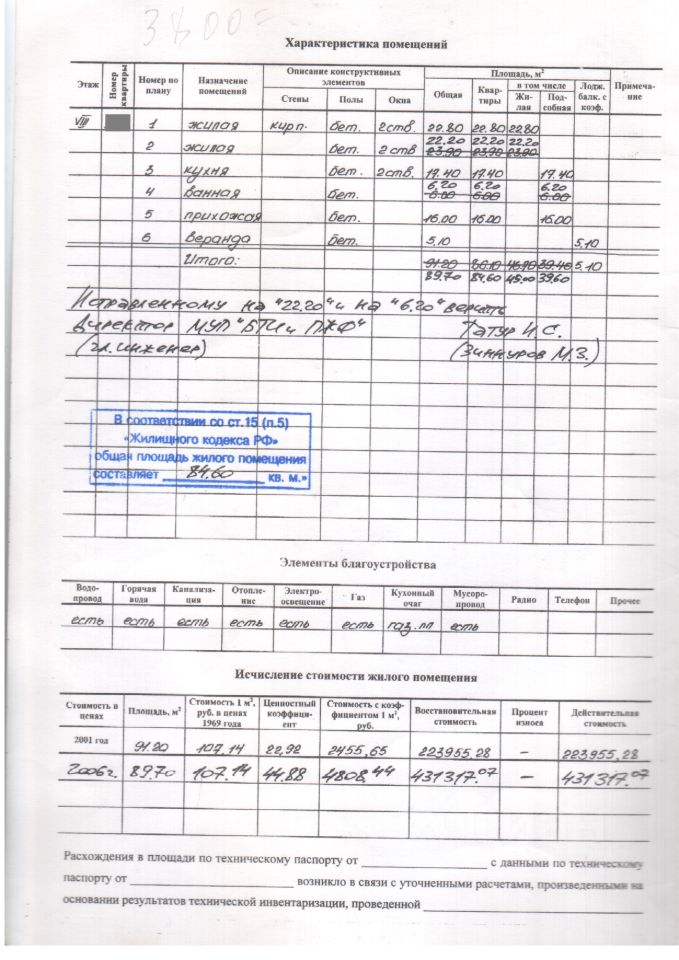 3800=
Характеристика помещений
Этаж | Номер квартиры | Номер по плану | Назначение помещений | Описание конструктивных элементов | Площадь, м² | Лодж. балк. с коэф. | Примеча-ние
Стены | Полы | Окна | Общая | Квар-тиры | в том числе
Жи-лая | Под-собная
VIII 1 жилая кирп. бет. 2ств. 22.80 22.80 22.80
22.20 22.20 22.20
2 жилая бет. 2ств 23.90 23.90 23.90
3 кухня бет. 2ств. 17.40 17.40 17.40
6.20 6.20 6.20
4 ванная бет. 6.00 6.00 6.00
5 прихожая бет. 16.00 16.00 16.00
6 веранда бет. 5.10 5.10
Итого: 91.20 86.10 46.70 39.40 5,10
89.70 84.60 45.00 39.60
Исправленному на "22.20" и на "6.20" верить
Директор МУП "БТИ и ПЖФ" Татур И.С.
(гл. инженер) (Зиннуров М.З.)
В соответствии со ст.15 (п.5)
«Жилищного кодекса РФ»
общая площадь жилого помещения
составляет 84.60 кв. м.»
Элементы благоустройства
Водо-провод | Горячая вода | Канализа-ция | Отопле-ние | Электро-освещение | Газ | Кухонный очаг | Мусоро-провод | Радио | Телефон | Прочее
есть есть есть есть есть есть газ.пл есть
Исчисление стоимости жилого помещения
Стоимость в ценах | Площадь, м² | Стоимость 1 м², руб. в ценах 1969 года | Ценностный коэффици-ент | Стоимость с коэф-фициентом 1 м², руб. | Восстановительная стоимость | Процент износа | Действительная стоимость
2001 год 91.20 107.14 22,92 2455,65 223955,28 – 223955,28
2006г. 89.70 107.14 44.88 4808.44 431317.07 – 431317.07
Расхождения в площади по техническому паспорту от ____ с данными по техническому
паспорту от ____ возникло в связи с уточненными расчетами, произведенными на
основании результатов технической инвентаризации, проведенной ____